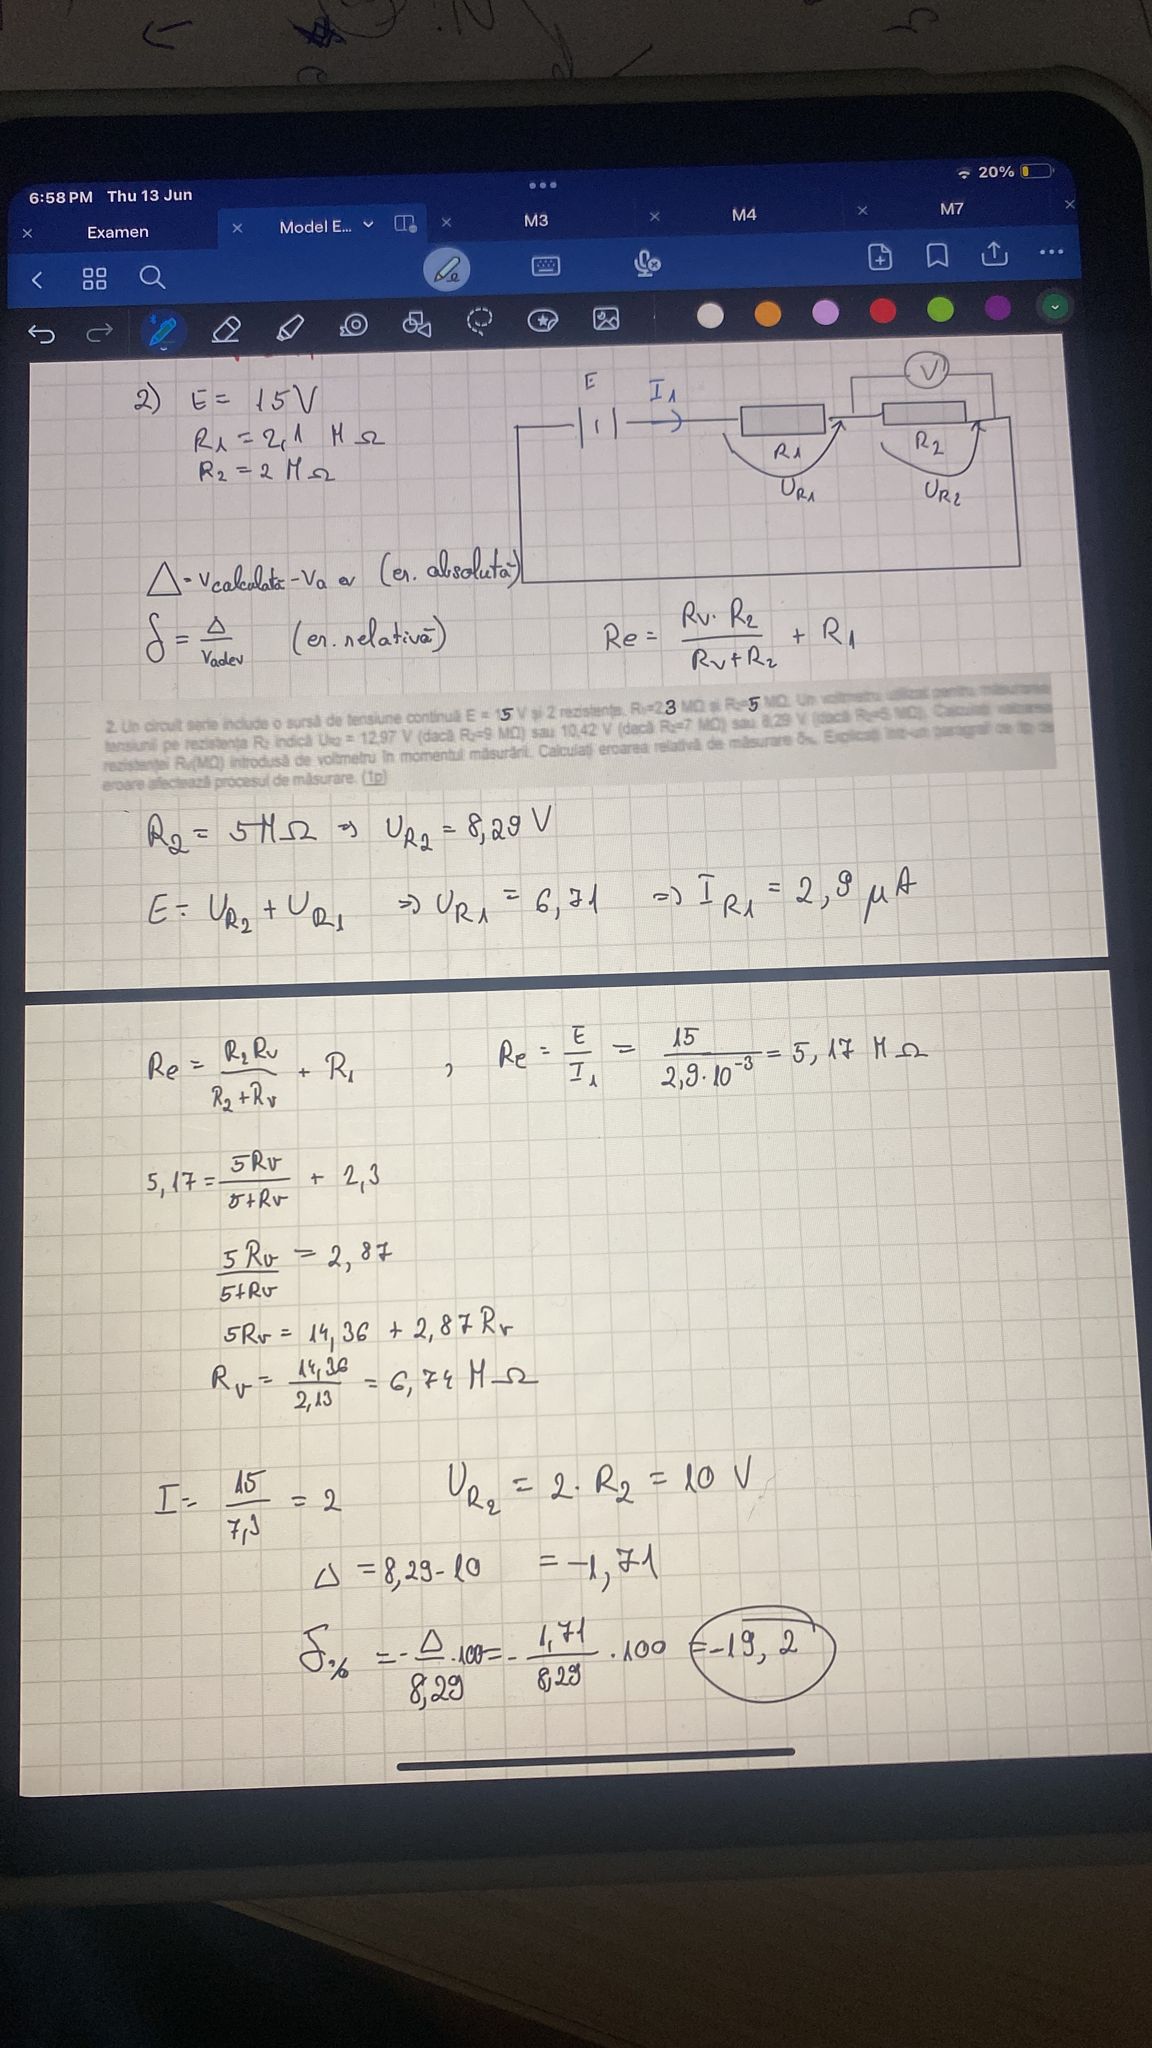 6:58 PM Thu 13 Jun
20%
Examen
Model E...
M3
M4
M7
2) E = 15V
R1 = 2,1 MΩ
R2 = 2 MΩ
E
I1
V
R1
R2
UR1
UR2
Δ = Vcalculata - Va ev (er. absolută)
δ = Δ / Vadev (er. relativă)
Re = Rv·R2 / Rv+R2 + R1
2. Un circuit serie include o sursă de tensiune continuă E = 15 V și 2 rezistențe, R1=2,3 MΩ și R2=5 MΩ. Un voltmetru utilizat pentru măsurarea
tensiunii pe rezistența R2 indică UR2 = 12,97 V (dacă R2=9 MΩ) sau 10,42 V (dacă R2=7 MΩ) sau 8,29 V (dacă R2=5 MΩ). Calculați valoarea
rezistenței Rv(MΩ) introdusă de voltmetru în momentul măsurării. Calculați eroarea relativă de măsurare δ%. Explicați într-un paragraf ce tip de
eroare afectează procesul de măsurare. (1p)
R2 = 5MΩ => UR2 = 8,29 V
E = UR2 + UR1 => UR1 = 6,71 => IR1 = 2,9 μA
Re = R2 Rv / R2+Rv + R1 , Re = E / I1 = 15 / 2,9·10⁻³ = 5,17 MΩ
5,17 = 5Rv / 5+Rv + 2,3
5Rv / 5+Rv = 2,87
5Rv = 14,36 + 2,87Rv
Rv = 14,36 / 2,13 = 6,74 MΩ
I = 15 / 7,3 = 2 UR2 = 2·R2 = 10 V
Δ = 8,29-10 = -1,71
δ% = - Δ / 8,29 ·100 = - 1,71 / 8,29 ·100 = -19,2